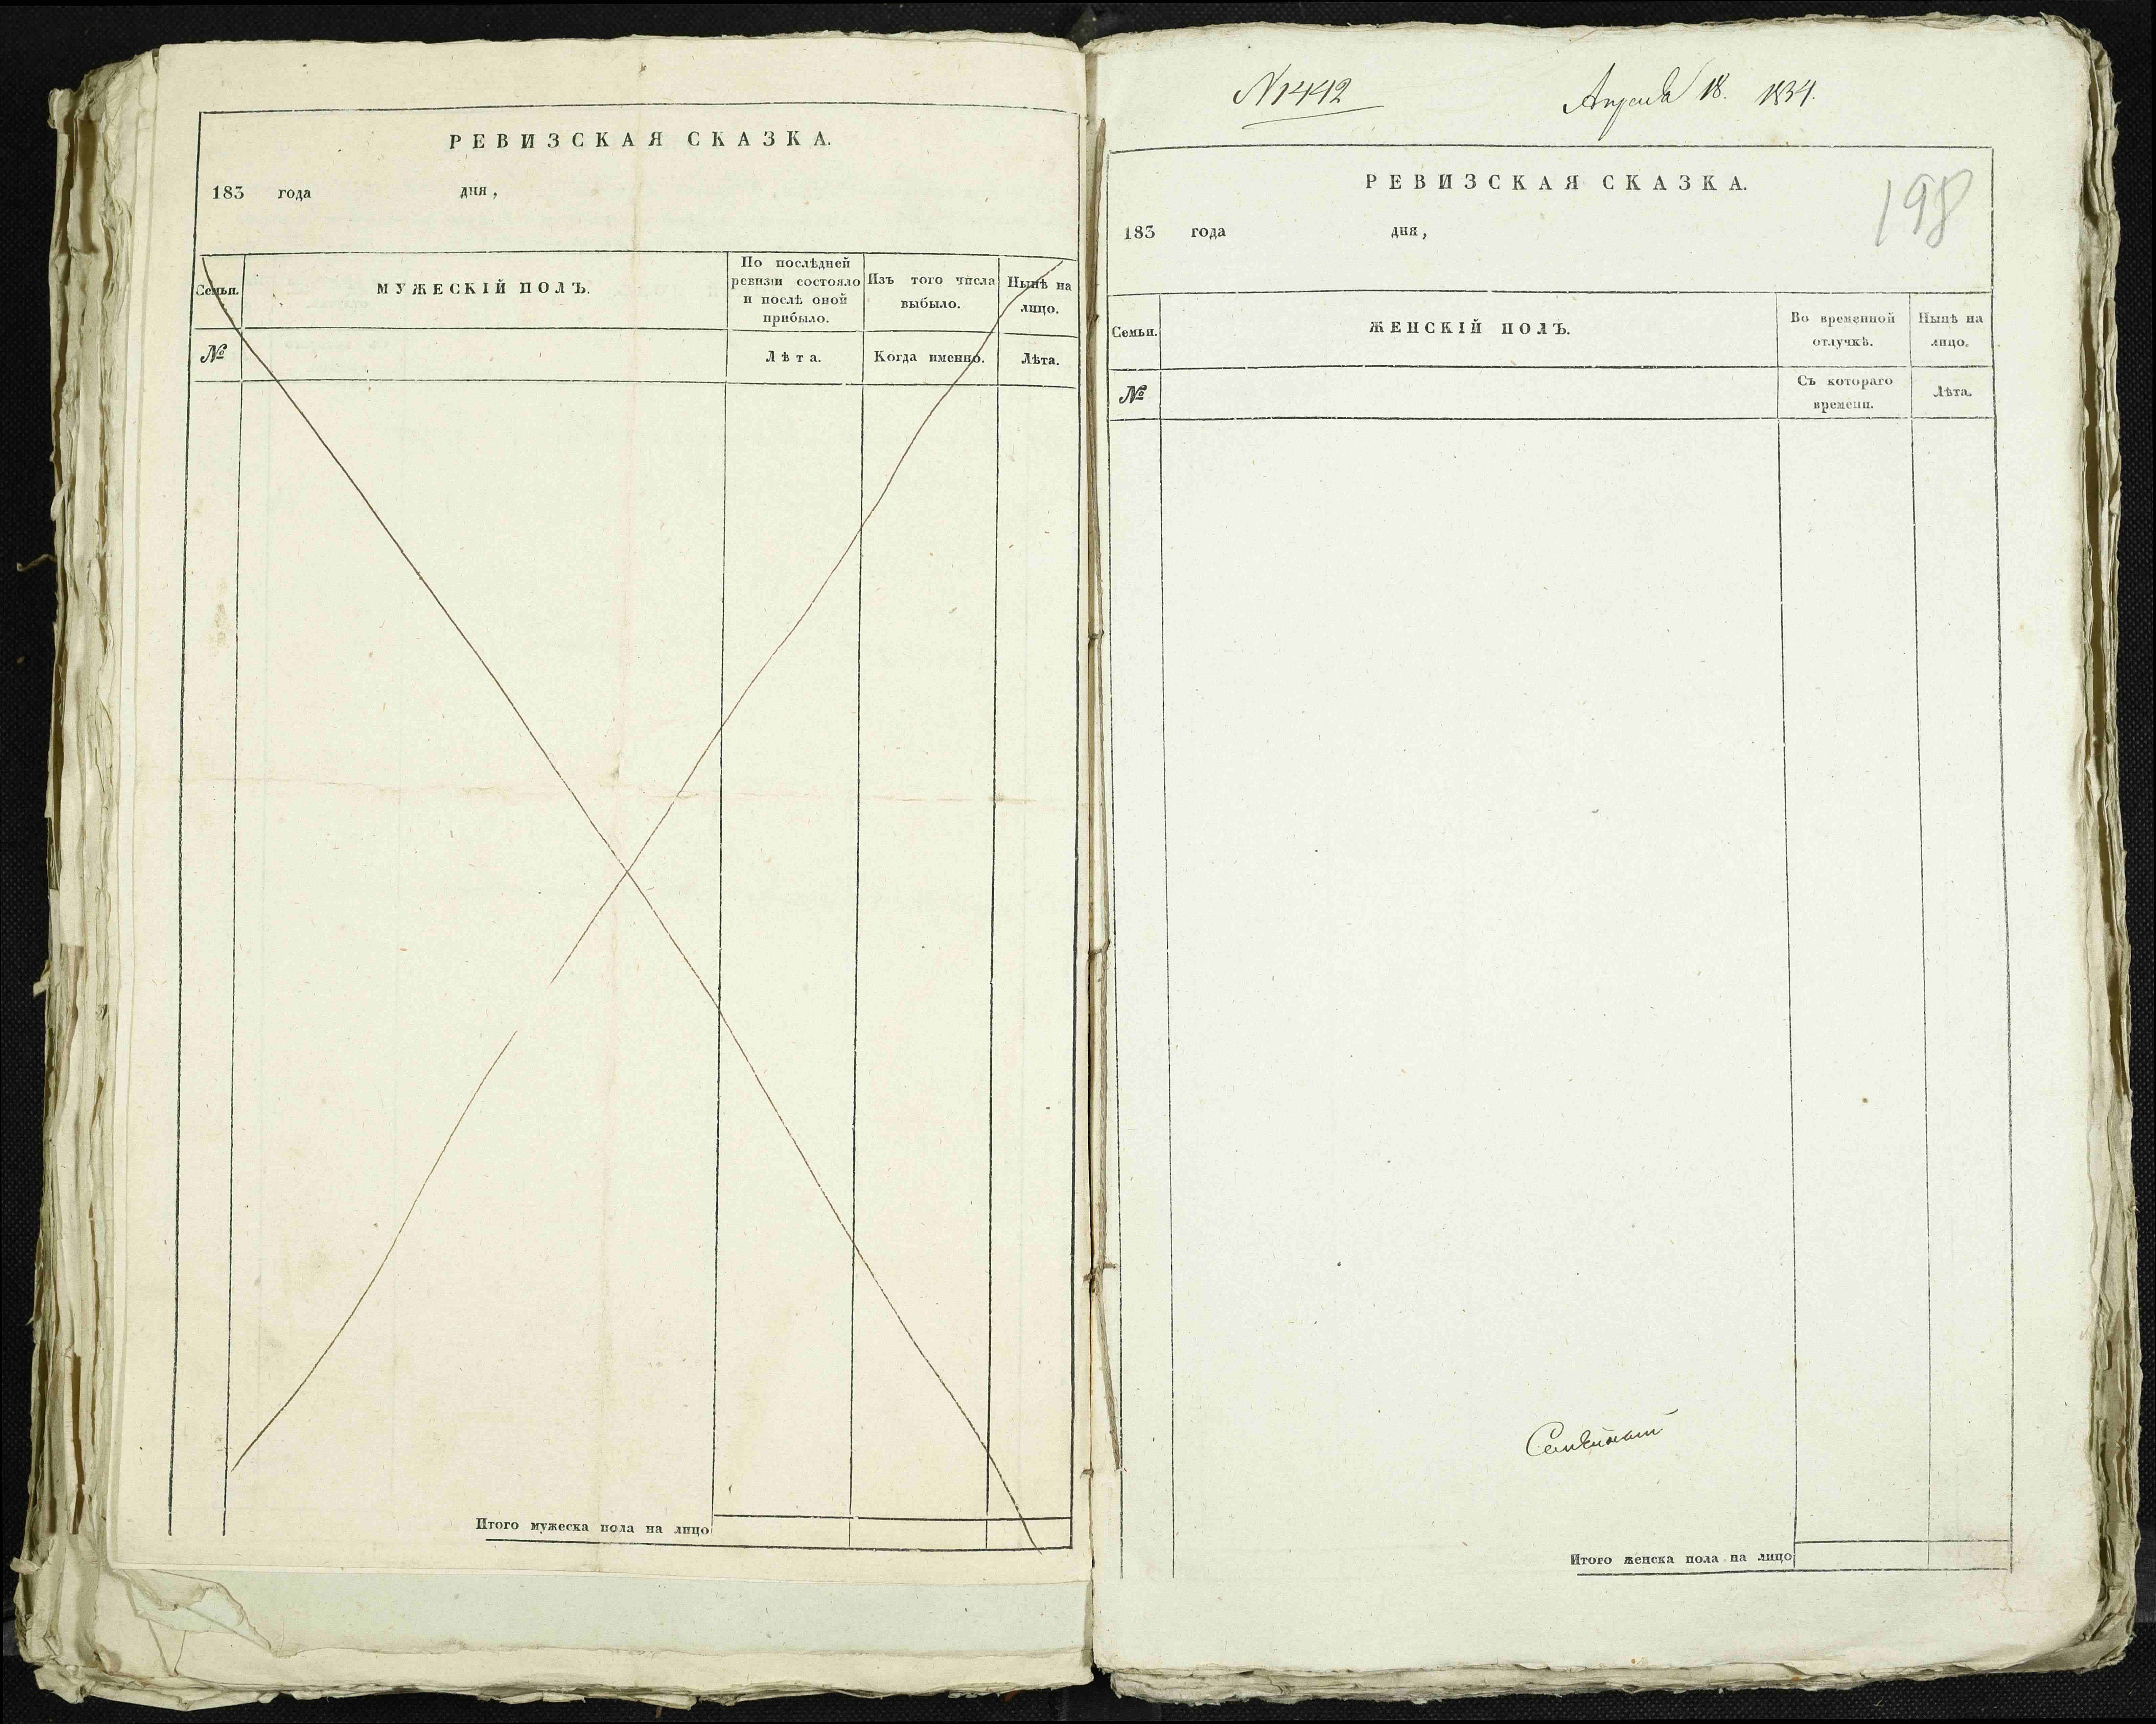 РЕВИЗСКАЯ СКАЗКА.
183 года дня,
Семьи.
МУЖЕСКІЙ ПОЛЪ.
По послѣдней
ревизіи состояло
и послѣ оной
прибыло.
Изъ того числа
выбыло.
Нынѣ на
лицо.
№
Лѣта.
Когда именно.
Лѣта.
Итого мужеска пола на лицо
N 1442
Апреля 18. 1834.
198
РЕВИЗСКАЯ СКАЗКА.
183 года дня,
Семьи.
ЖЕНСКІЙ ПОЛЪ.
Во временной
отлучкѣ.
Нынѣ на
лицо.
№
Съ котораго
времени.
Лѣта.
Итого женска пола на лицо